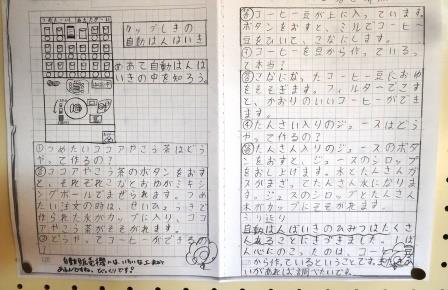 カップしきの
自動はんばいき
めあて 自動はんば
いきの中を知ろう。
①つめたいココアやこう茶はどう
やって作るの?
答ココアやこう茶のボタンをおす
と、それぞれこなとおゆがミキシ
ングボールでまぜられます。つめ
たい注文の時は、せいひょうきで
作られた氷がカップに入り、ココ
アやこう茶がそそがれます。
②どうやってコーヒーができるの
答コーヒー豆が上に入っています。
ボタンをおすと、ミルでコーヒー
豆をひいて、こなにします。
③コーヒーを豆から作っているっ
て本当?
答こなになったコーヒー豆におゆ
をそそぎます。フィルターでこす
と、かおりのいいコーヒーができ
ます。
④たんさん入りのジュースはどう
やって作るの?
答たんさん入りのジュースのボタ
ンをおすと、ジュースのシロップ
をおし上げます。水とたんさんガ
スがまざってたんさん水になりま
す。ジュースのシロップとたんさん
水がカップにそそがれます。
ふり返り
自動はんばいきのひみつはたくさ
んあることにきづきました。
心にのこったのは、コーヒーを豆
から作っているということです。
いがあれば調べたいです。
自動販売機には、いろいろな工夫が
あるんですね。びっくりです。